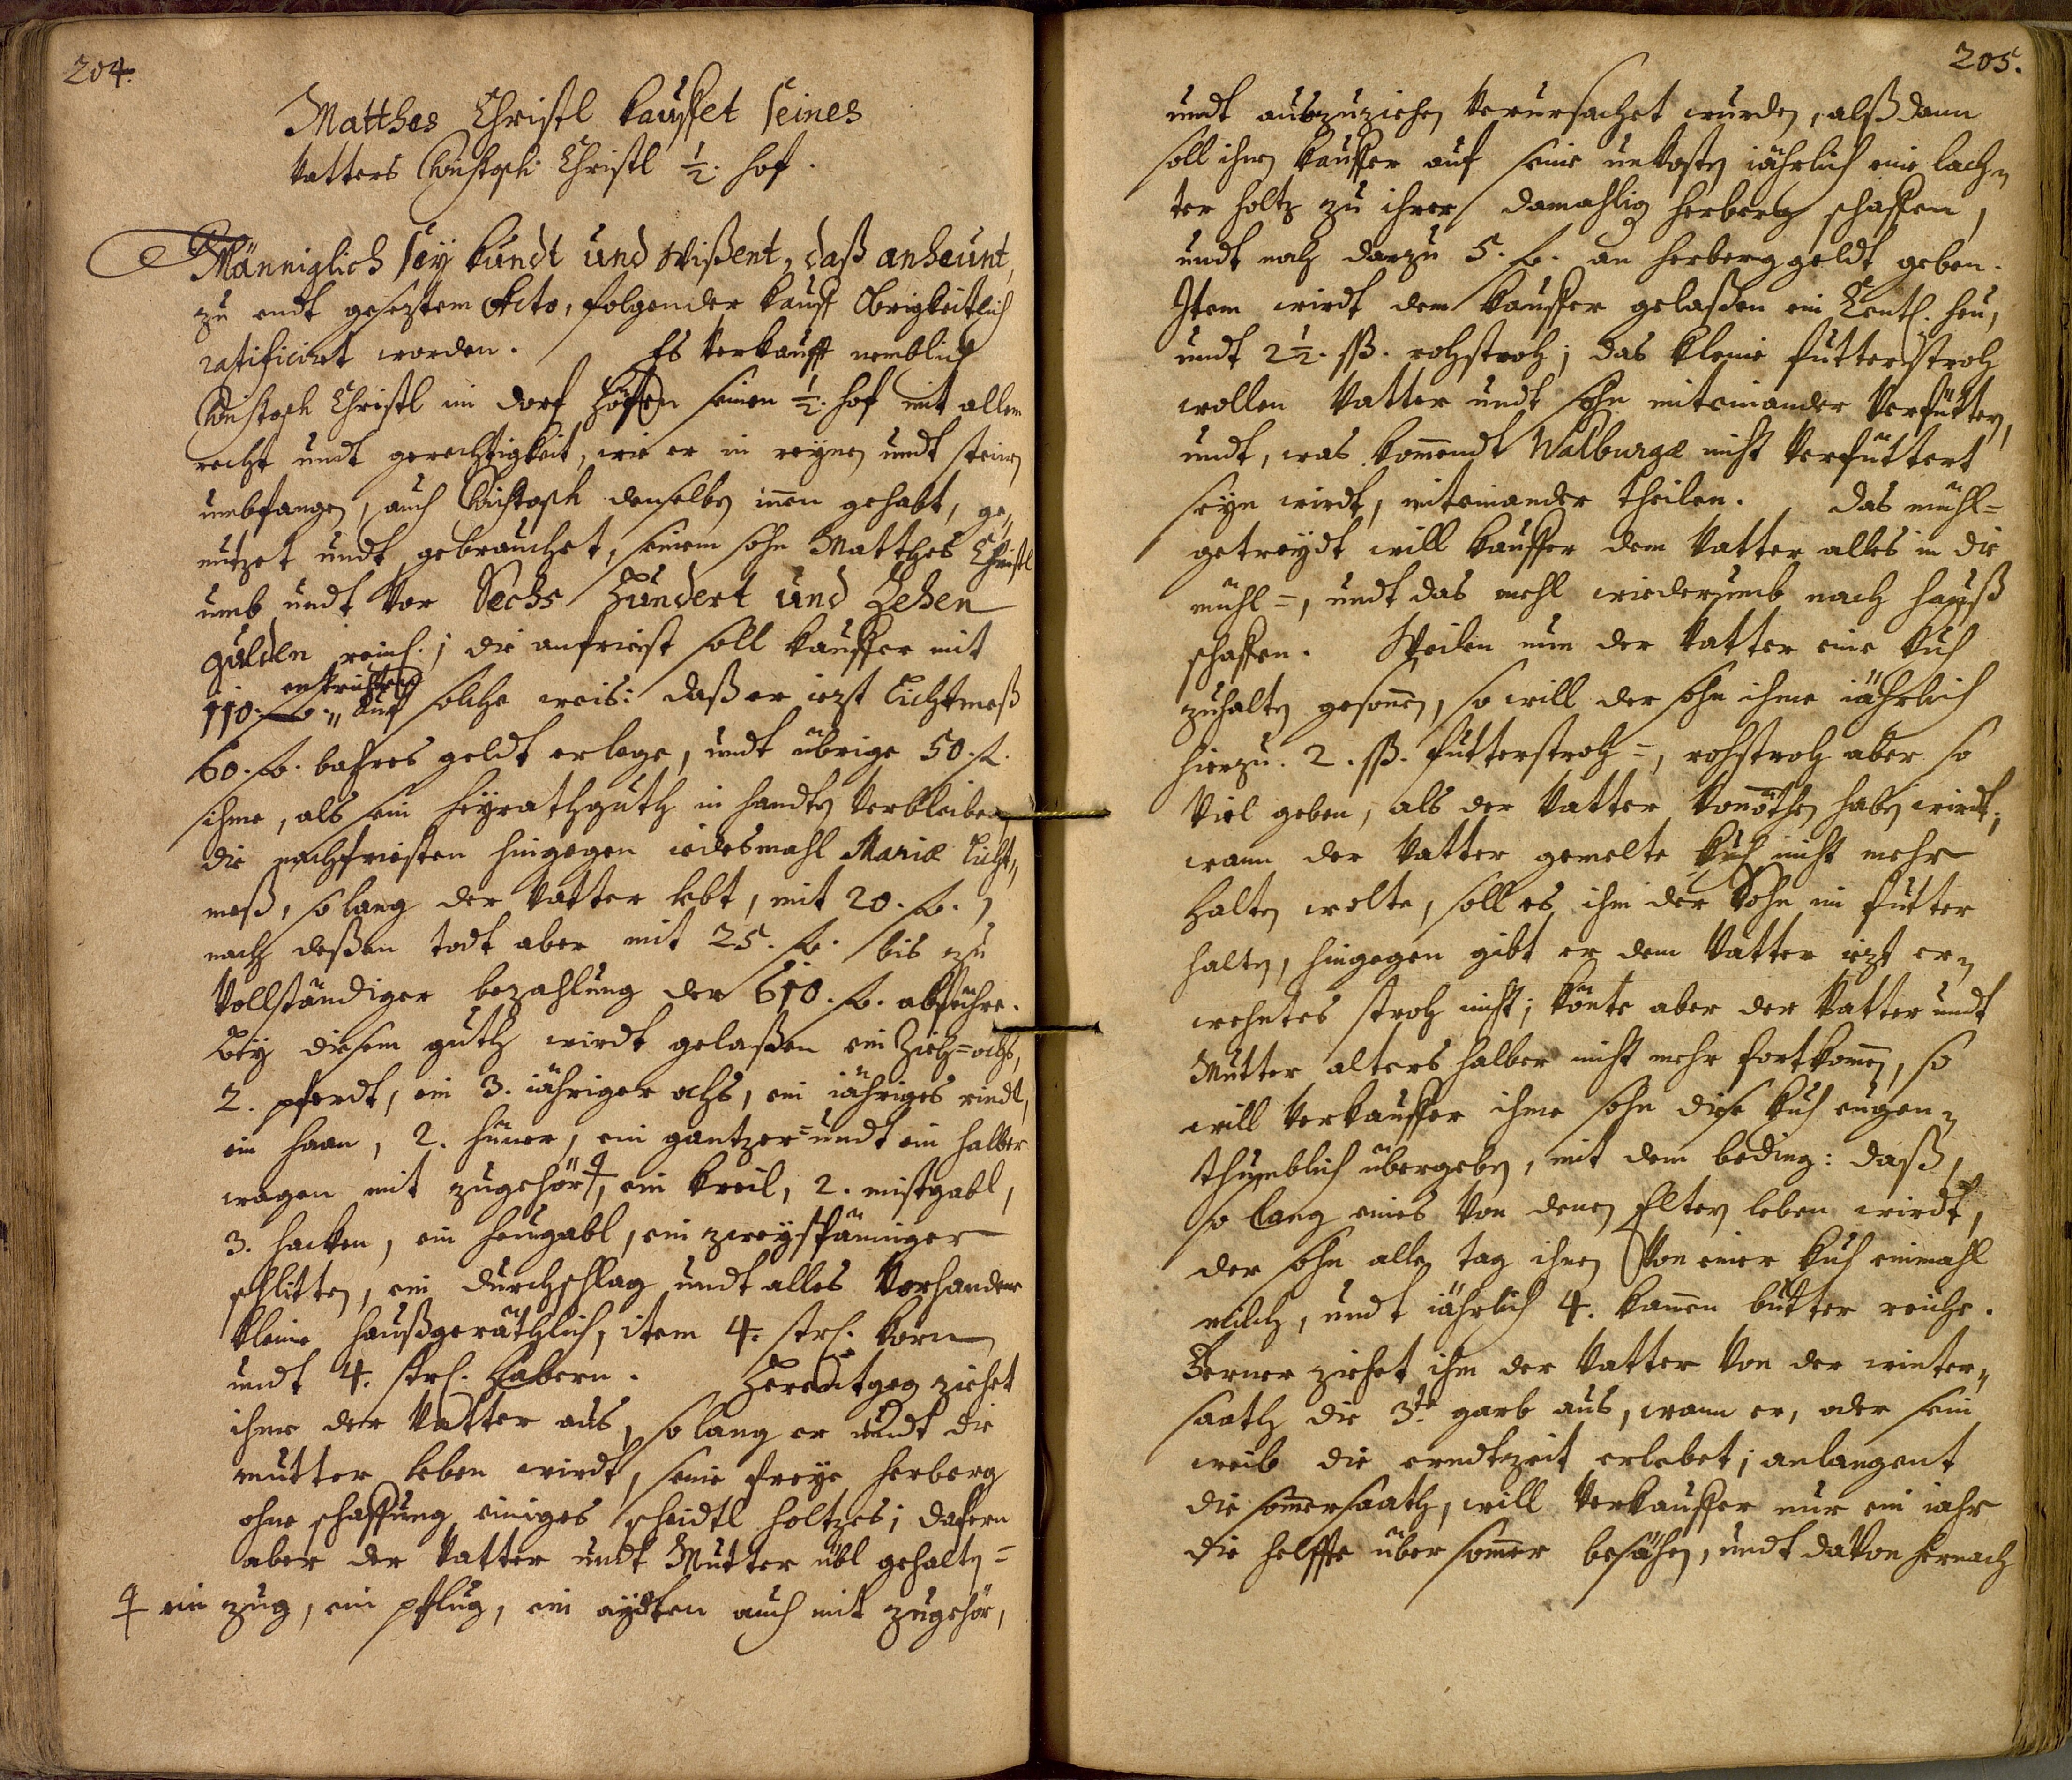 204.
Matthes Christl kauffet seines
Vatters Christoph Christl ½. hof.
Männiglich sey kundt und wißent, daß anheunt,
zu endt gesezten dato, folgender kauff Obrigkeitlich
ratificiret worden. Es verkaufft nemblich
Christoph Christl im dorf Höffen seinen ½. hof mit allem
recht undt gerechtigkeit, wie er in reynen undt steinen
umbfangen, auch Christoph denselben innen gehabt, ge„
nutzet undt gebrauchet, seinem sohn Matthes Christl
umb undt vor Sechs Hundert und Zehen
gulden reinl.; die anfriest soll kauffer mit
entrichten
110. fl. „ auf solche weis: daß er iezt Lichtmeß
60. fl. bahres geldt erlege, undt übrige 50. fl.
ihme, als sein heyrathguth in handten verbleiben,
die nachfriesten hingegen iedesmahl Mariæ Licht„
meß, so lang der Vatter lebt, mit 20. fl.,
nach deßen todt aber mit 25. fl. bis zu
vollständiger bezahlung der 610. fl. abführe.
Bey diesem guth wirdt gelaßen ein Zieh=ochs,
2. pferdt, ein 3. iähriger ochs, ein iähriges rindl,
ein haan, 2. hüner, ein gantzer= undt ein halber
wagen mit zugehör, ein kreil, 2. mistgabl,
3. hacken, ein heugabl, ein zweyspänniger
schlitten, ein durchschlag undt alles vorhandene
kleine haußgeräthlich, item 4. strl. korn
undt 4. strl. Habern. Herentgeg ziehet
ihme der Vatter aus, so lang er undt die
mutter leben wirdt, seine freye herberg
ohne schaffung einiges scheidtl holtzes; dafern
aber der Vatter undt Mutter übl gehalten=
ein zug, ein pflug, ein aydten auch mit zugehör,
205.
undt auszuziehen verursachet wurden, alßdann
soll ihnen kauffer auf seine unkosten iährlich eine lach„
ter holtz zu ihrer damahlig herberg schaffen,
undt noch darzu 5. fl. an herberggeldt geben.
Item wirdt dem kauffer gelaßen ein Centl. heu,
undt 2½. ß. rohstroh; das kleine futterstroh
wollen Vatter undt sohn miteinander verfuttern,
undt, was kommendt Walburgæ nicht verfuttert
seyn wirdt, miteinander theilen. das mühl=
getreydt will kauffer dem Vatter alles in die
mühl=, undt das mehl wiederumb nach hauß
schaffen. Weilen nun der Vatter eine kuh
zuhalten gesonnen, so will der sohn ihme iährlich
hierzu. 2. ß. futterstroh=, rohstroh aber so
viel geben, als der Vatter vonöthen haben wirdt;
wann der Vatter gemelte kuh nicht mehr
halten wolte, soll es ihm der Sohn im futter
halten, hingegen gibt er dem Vatter iezt er„
wehntes stroh nicht; könte aber der Vatter undt
Mutter alters halber nicht mehr fortkommen, so
will verkauffer ihme sohn diese kuh eugen„
thumblich übergeben, mit dem beding: daß,
so lang eines von denen Eltern leben wirdt,
der sohn alle tag ihnen von einer kuh einmahl
milch, undt iährlich 4. kannen butter reiche.
Ferner ziehet ihm der Vatter von der winter„
saath die 3te garb aus, wann er, oder sein
weib die erndtzeit erlebet; anlangent
die sommersaath, will verkauffer nur ein iahr
die helffte über sommer besähen, undt davon hernach